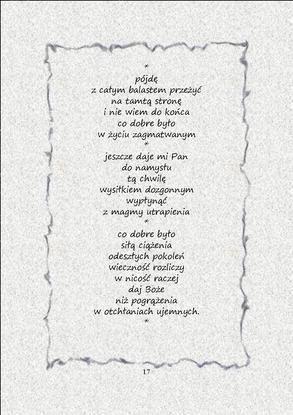 *
pójdę
z całym balastem przeżyć
na tamtą stronę
i nie wiem do końca
co dobre było
w życiu zagmatwanym
*
jeszcze daje mi Pan
do namysłu
tą chwilę
wysiłkiem dozgonnym
wypłynąć
z magmy utrapienia
*
co dobre było
siłą ciążenia
odeszłych pokoleń
wieczność rozliczy
w nicość raczej
daj Boże
niż pogrążenia
w otchłaniach ujemnych.
*
17